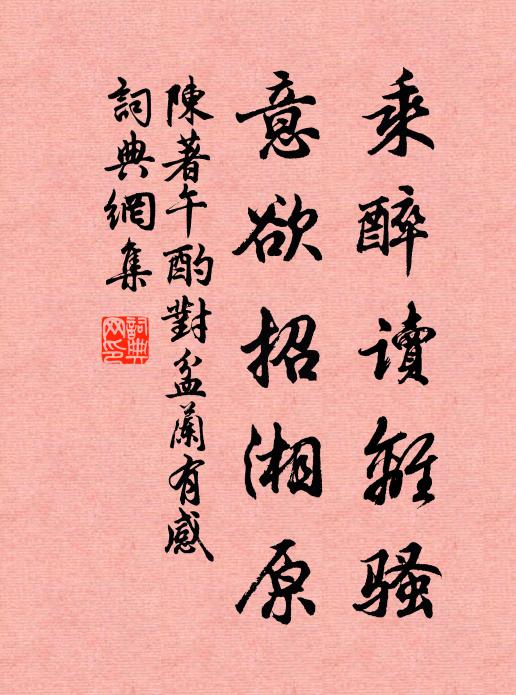 乘醉讀離騷
意欲招湘原
陳著午酌對盆蘭有感
詞典網集
詞典网印